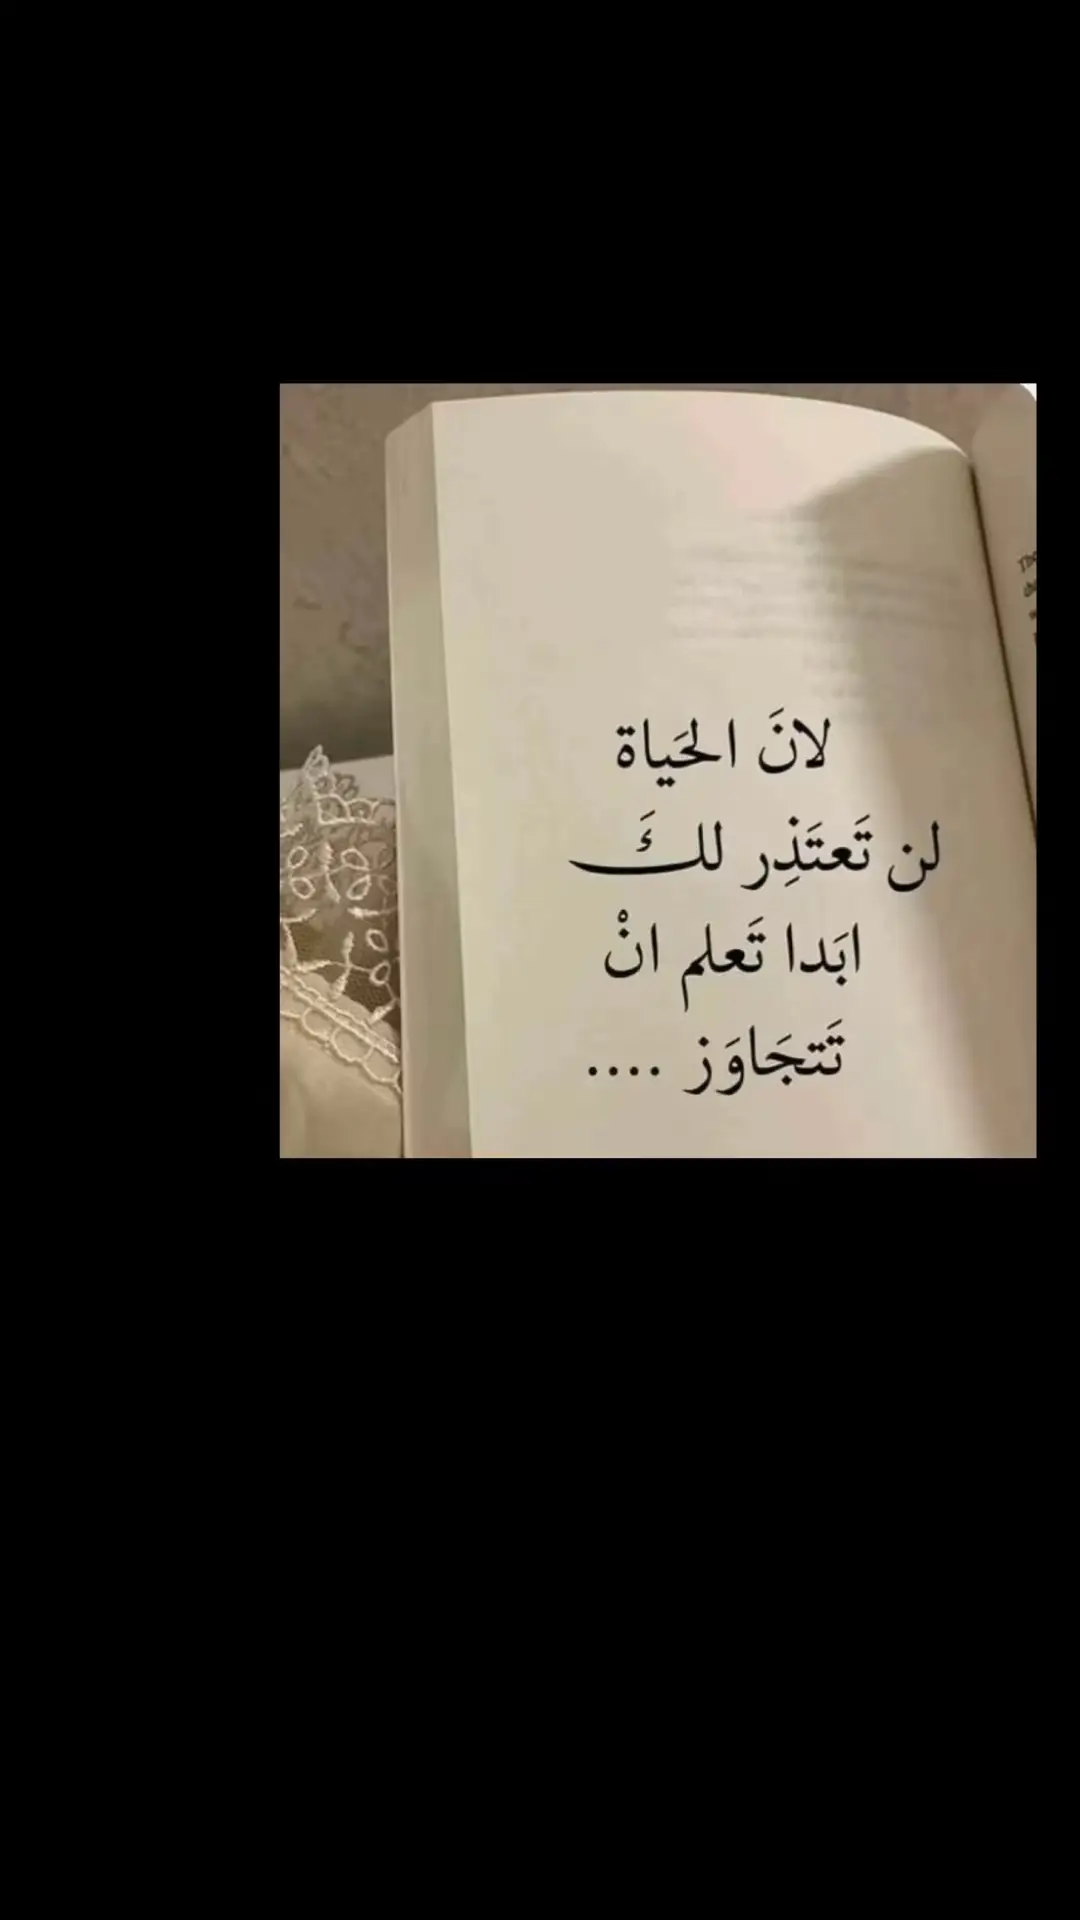 لانَ الحَياة
لن تَعتَذِر لكَ
ابَدا تَعلم انْ
تَتجَاوَز ....